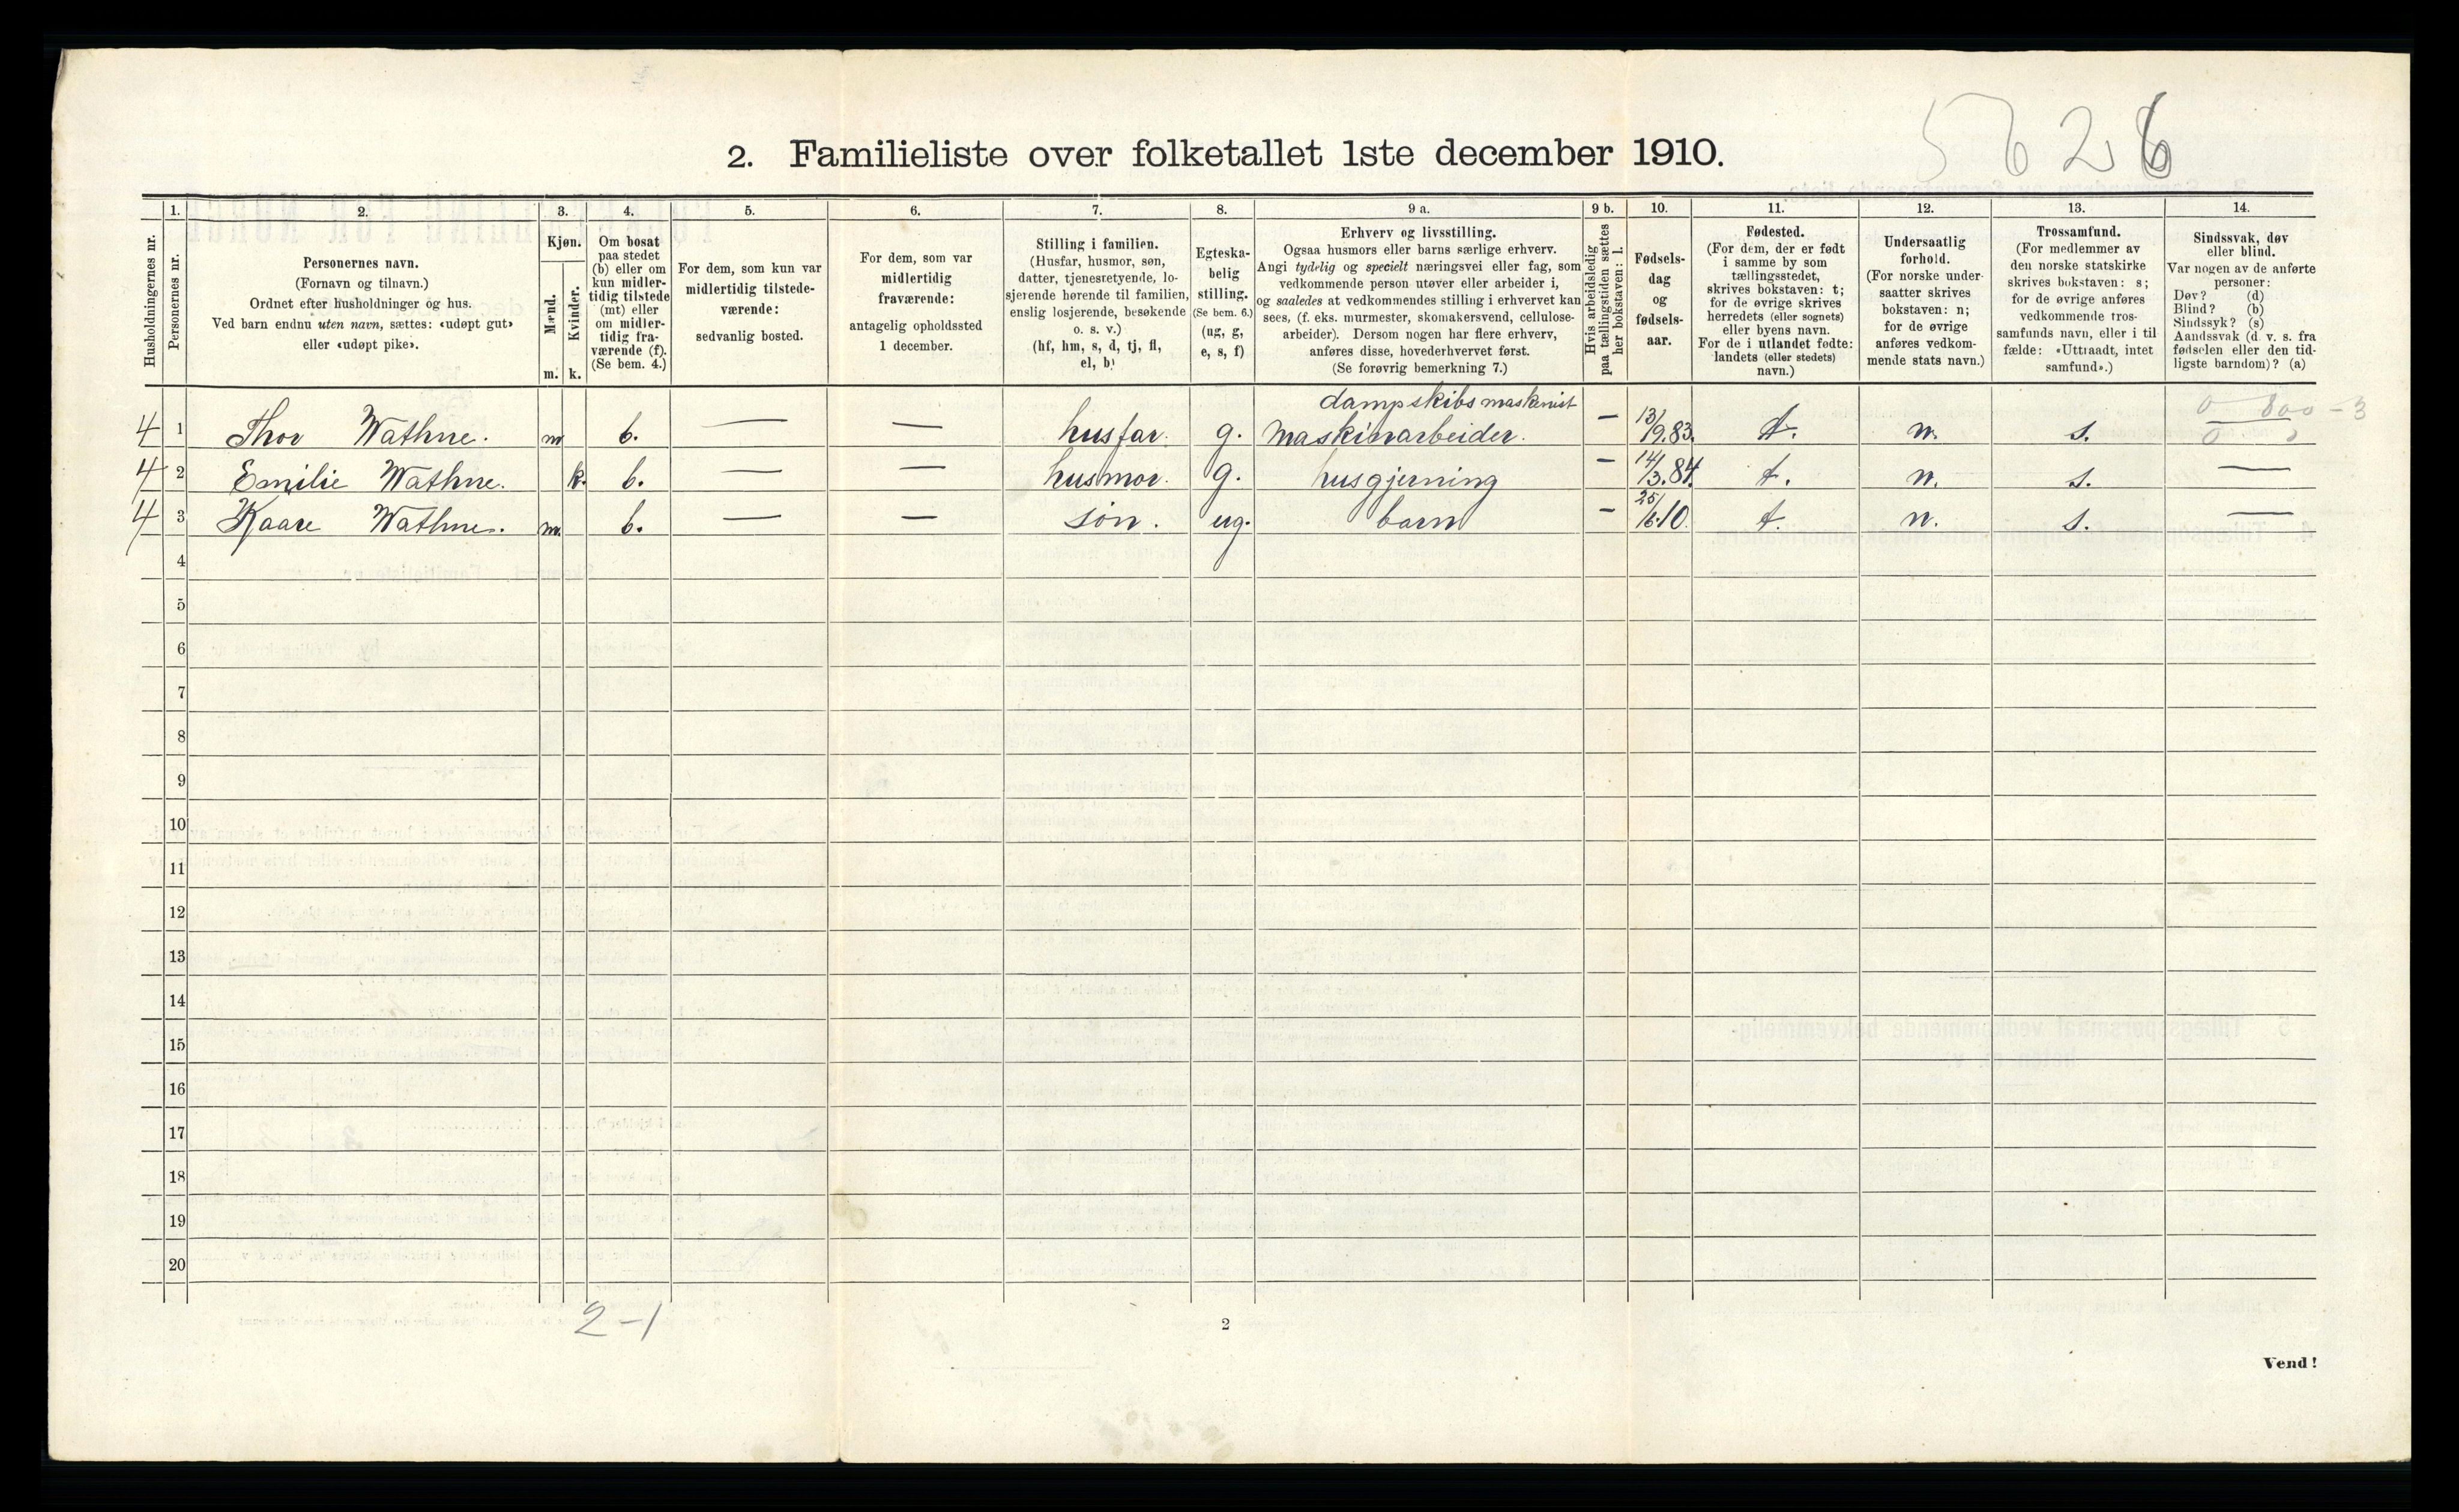 5626
2. Familieliste over folketallet 1ste december 1910.
Husholdningernes nr.
1.
Personernes nr.
2.
Personernes navn.
(Fornavn og tilnavn.)
Ordnet efter husholdninger og hus.
Ved barn endnu uten navn, sættes: «udøpt gut»
eller «udøpt pike».
3.
Kjøn.
Mænd.
m.
Kvinder.
k.
4.
Om bosat
paa stedet
(b) eller om
kun midler-
tidig tilstede
(mt) eller
om midler-
tidig fra-
værende (f).
(Se bem. 4.)
5.
For dem, som kun var
midlertidig tilstede-
værende:
sedvanlig bosted.
6.
For dem, som var
midlertidig
fraværende:
antagelig opholdssted
1 december.
7.
Stilling i familien.
(Husfar, husmor, søn,
datter, tjenestetyende, lo-
sjerende hørende til familien,
enslig losjerende, besøkende
o. s. v.)
(hf, hm, s, d, tj, fl,
el, b)
8.
Egteska-
belig
stilling.
(Se bem. 6.)
(ug, g,
e, s, f)
9 a.
Erhverv og livsstilling.
Ogsaa husmors eller barns særlige erhverv.
Angi tydelig og specielt næringsvei eller fag, som
vedkommende person utøver eller arbeider i,
og saaledes at vedkommendes stilling i erhvervet kan
sees, (f. eks. murmester, skomakersvend, cellulose-
arbeider). Dersom nogen har flere erhverv,
anføres disse, hovederhvervet først.
(Se forøvrig bemerkning 7.)
9 b.
Hvis arbeidsledig
paa tællingstiden sættes
her bokstaven: l.
10.
Fødsels-
dag
og
fødsels-
aar.
11.
Fødested.
(For dem, der er født
i samme by som
tællingsstedet,
skrives bokstaven: t;
for de øvrige skrives
herredets (eller sognets)
eller byens navn.
For de i utlandet fødte:
landets (eller stedets)
navn.)
12.
Undersaatlig
forhold.
(For norske under-
saatter skrives
bokstaven: n;
for de øvrige
anføres vedkom-
mende stats navn.)
13.
Trossamfund.
(For medlemmer av
den norske statskirke
skrives bokstaven: s;
for de øvrige anføres
vedkommende tros-
samfunds navn, eller i til
fælde: «Uttraadt, intet
samfund».)
14.
Sindssvak, døv
eller blind.
Var nogen av de anførte
personer:
Døv? (d)
Blind? (b)
Sindssyk? (s)
Aandssvak (d. v. s. fra
fødselen eller den tid-
ligste barndom)? (a)
dampskibsmaskinist
0 800 - 3
4 1 Thor Wathne. m b. — — husfar. g. Maskinarbeider. — 13/9.83. t. n. s. 0 0
4 2 Emilie Wathne. k. b. — — husmor. g. husgjerning — 14/3.84. t. n. s. —
4 3 Kaare Wathne. m. b. — — søn. ug. barn — 25/6.10. t. n. s. —
4
5
6
7
8
9
10
11
12
13
14
15
16
17
18
19
20
2-1
2
Vend!